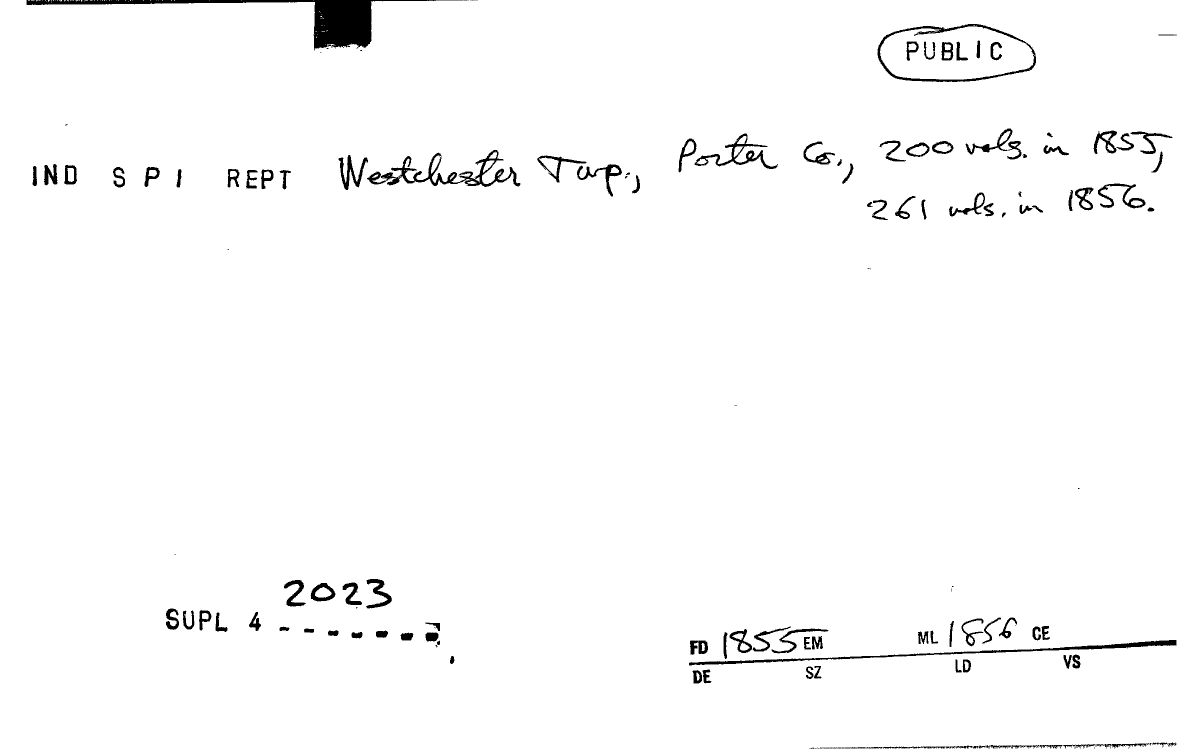 PUBLIC
IND S P I REPT Westchester Twp., Porter Co., 200 vols. in 1855,
261 vols. in 1856.
2023
SUPL 4
FD 1855 EM ML 1856 CE
DE SZ LD VS